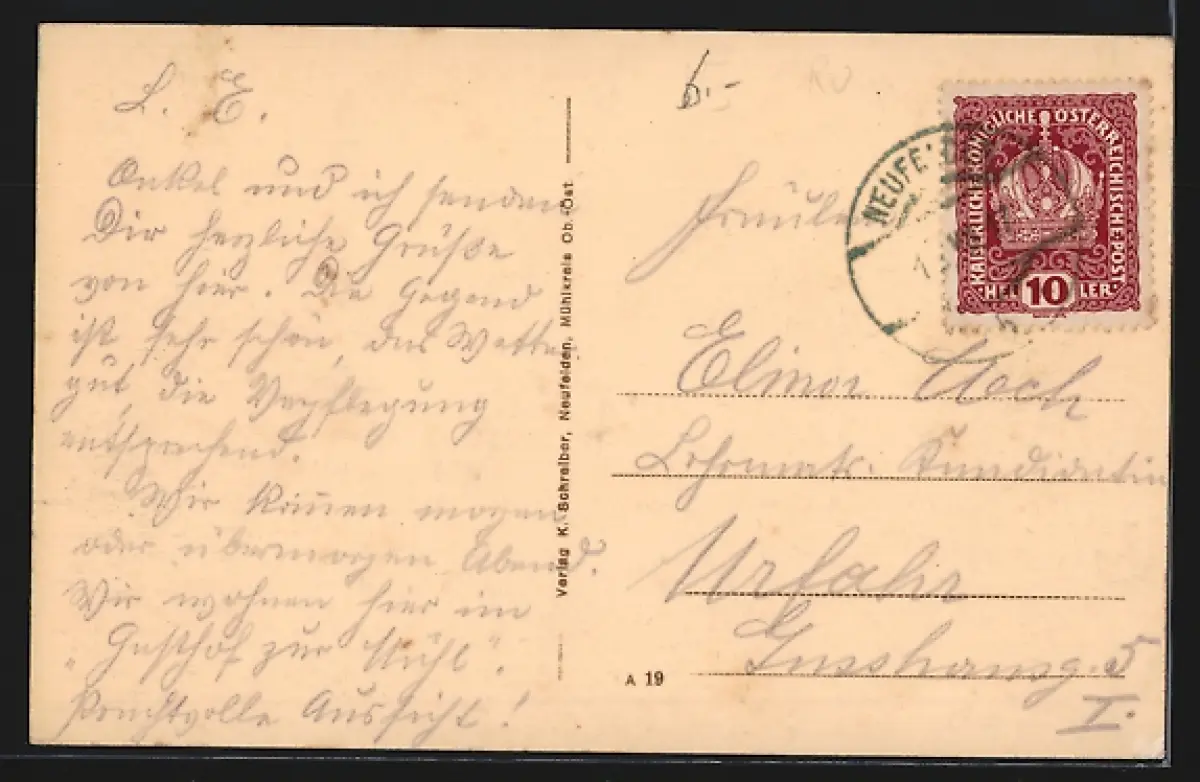 L. E.
Onkel und ich senden
Dir herzliche Grüße
von hier. Die Gegend
ist sehr schön, das Wetter
gut, die Verpflegung
entsprechend.
Wir kommen morgen
oder übermorgen Abend.
Wir wohnen hier im
„Gasthof zur Mühl".
Prachtvolle Aussicht!
Verlag K. Schreiber, Neufelden, Mühlkreis Ob.-Öst
6.-
RU
KAISERLICHE KÖNIGLICHE ÖSTERREICHISCHE POST
HELLER
10
NEUFE
Fräulein
Elinor
Lehramts-Kandidatin
Urfahr
5
I.
A 19